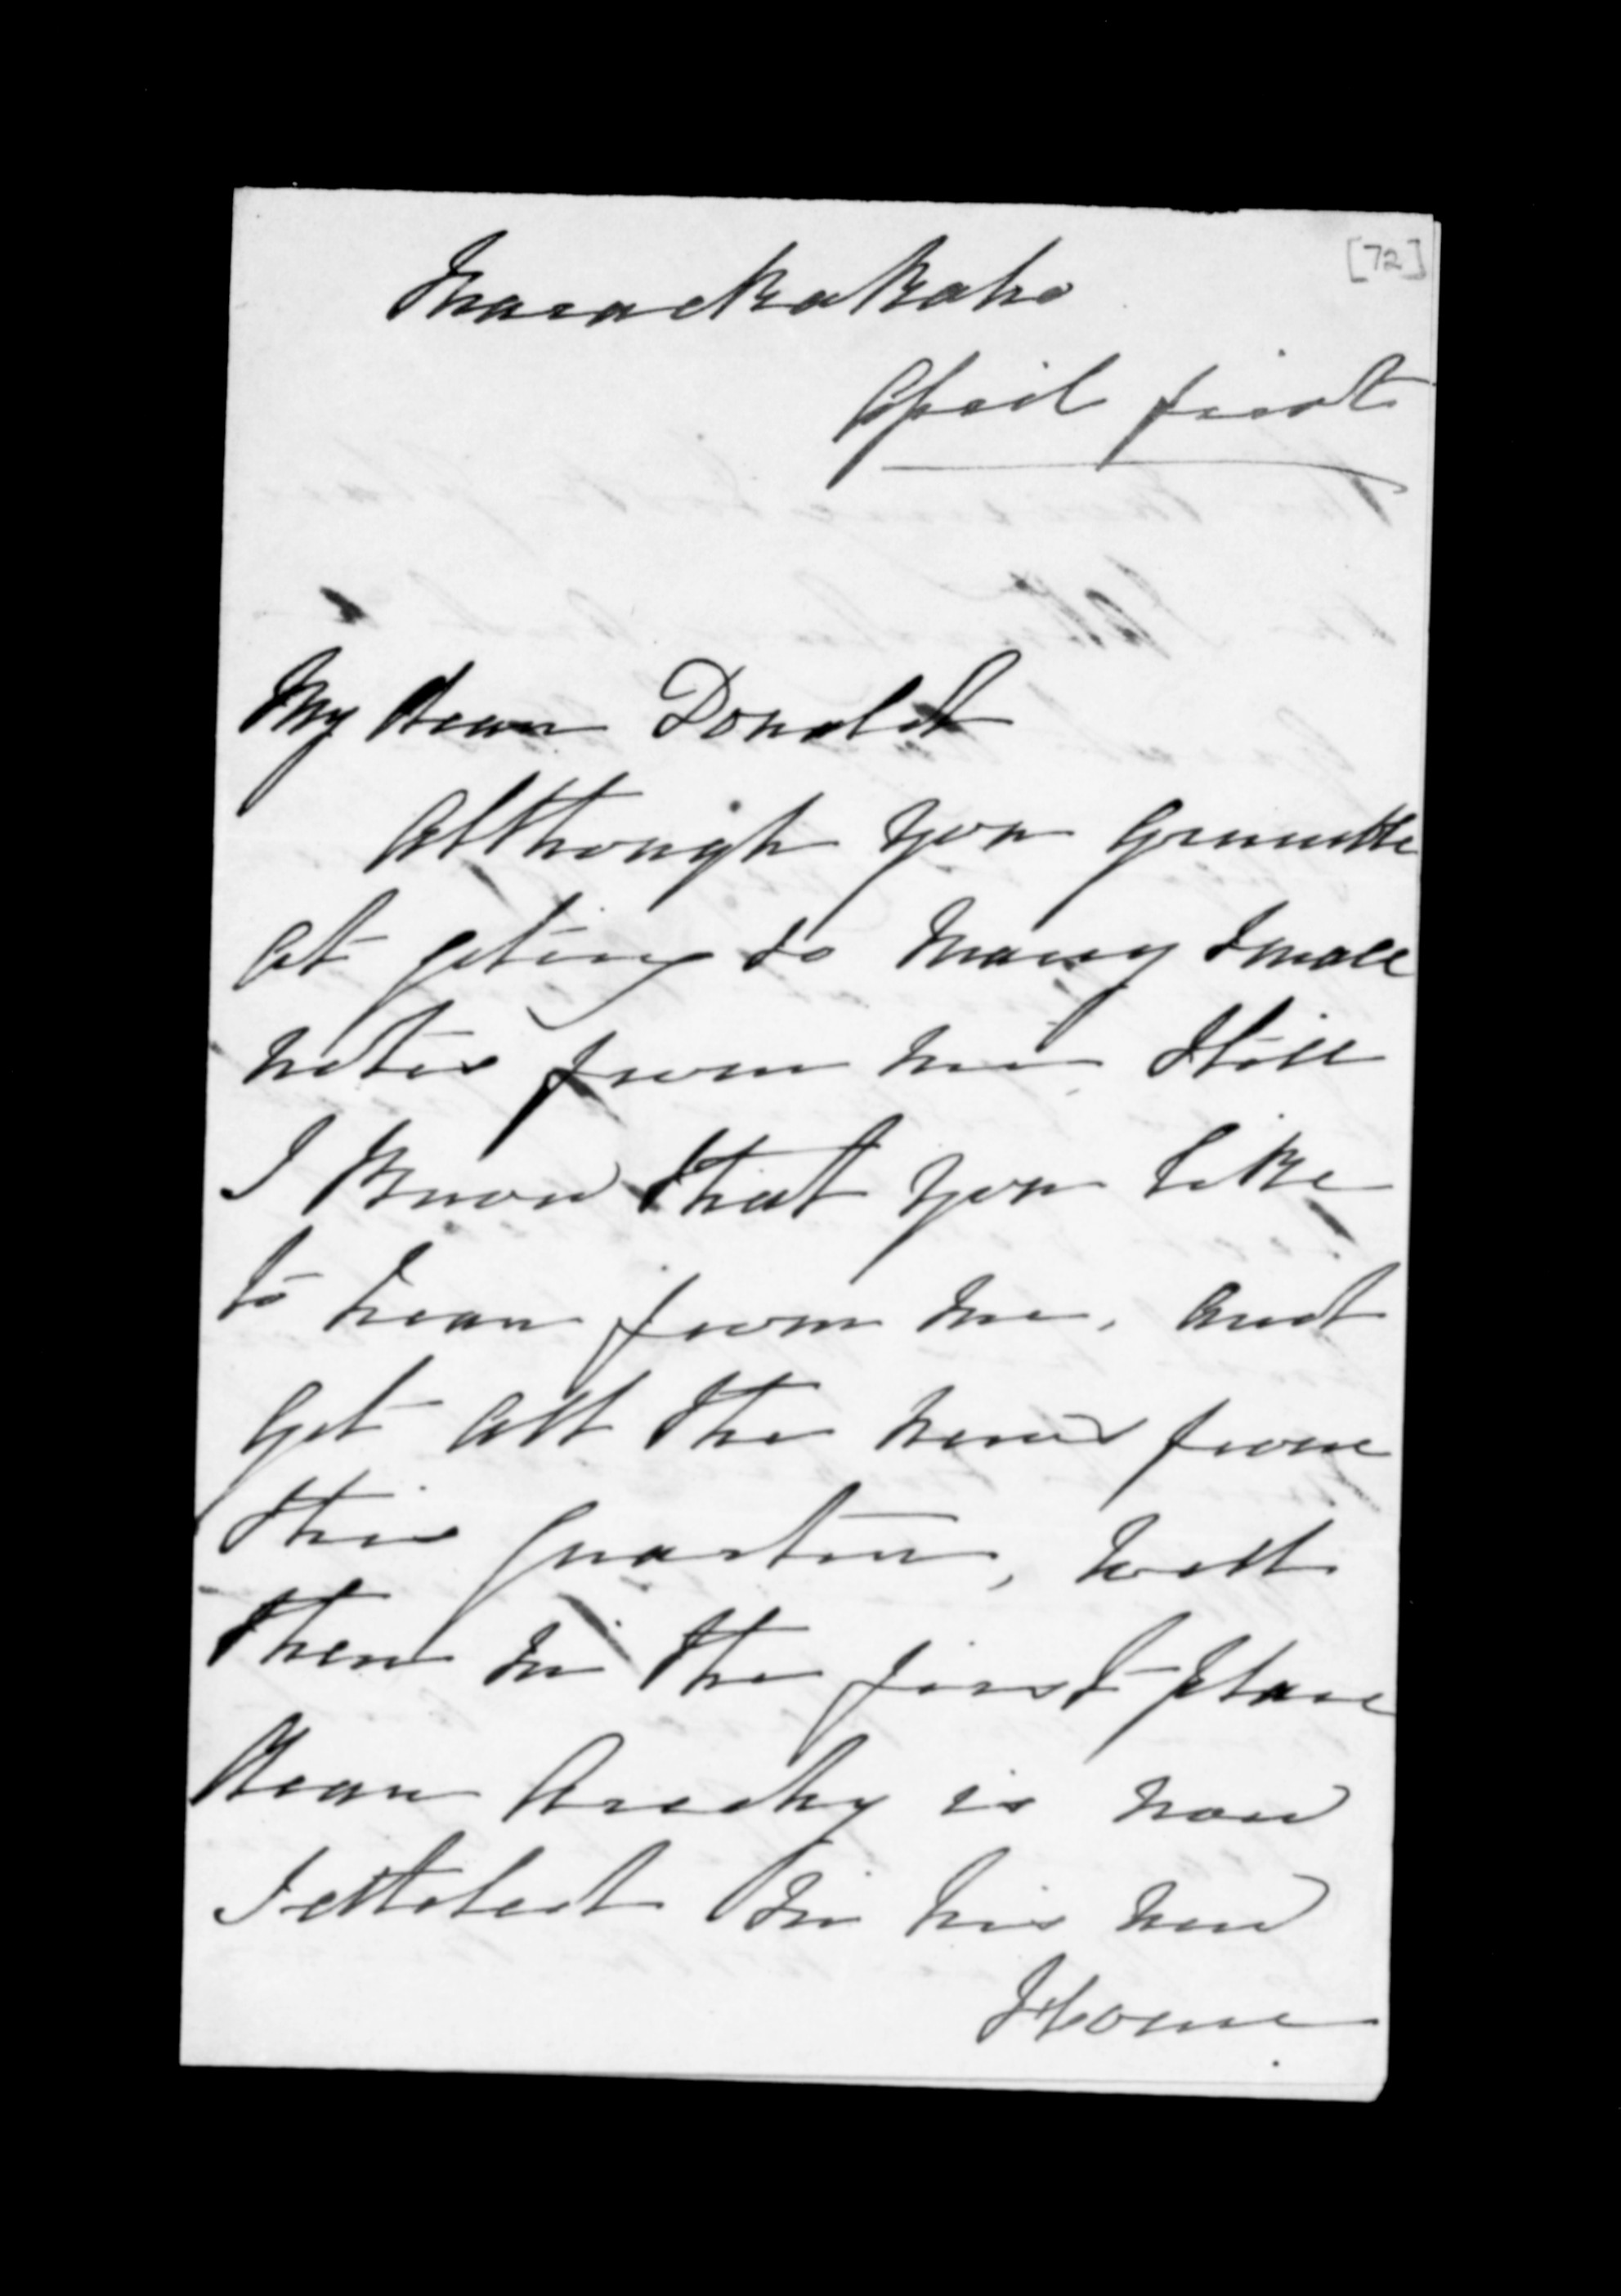 [72]
Maraekakaho
April first
My dear Donald
Although you grumble
at geting so many small
notes from me still
I know that you like
to hear from me, and
get all the news from
this quarter, well
then in the first place
dear Archy is now
setteled in his new
Home